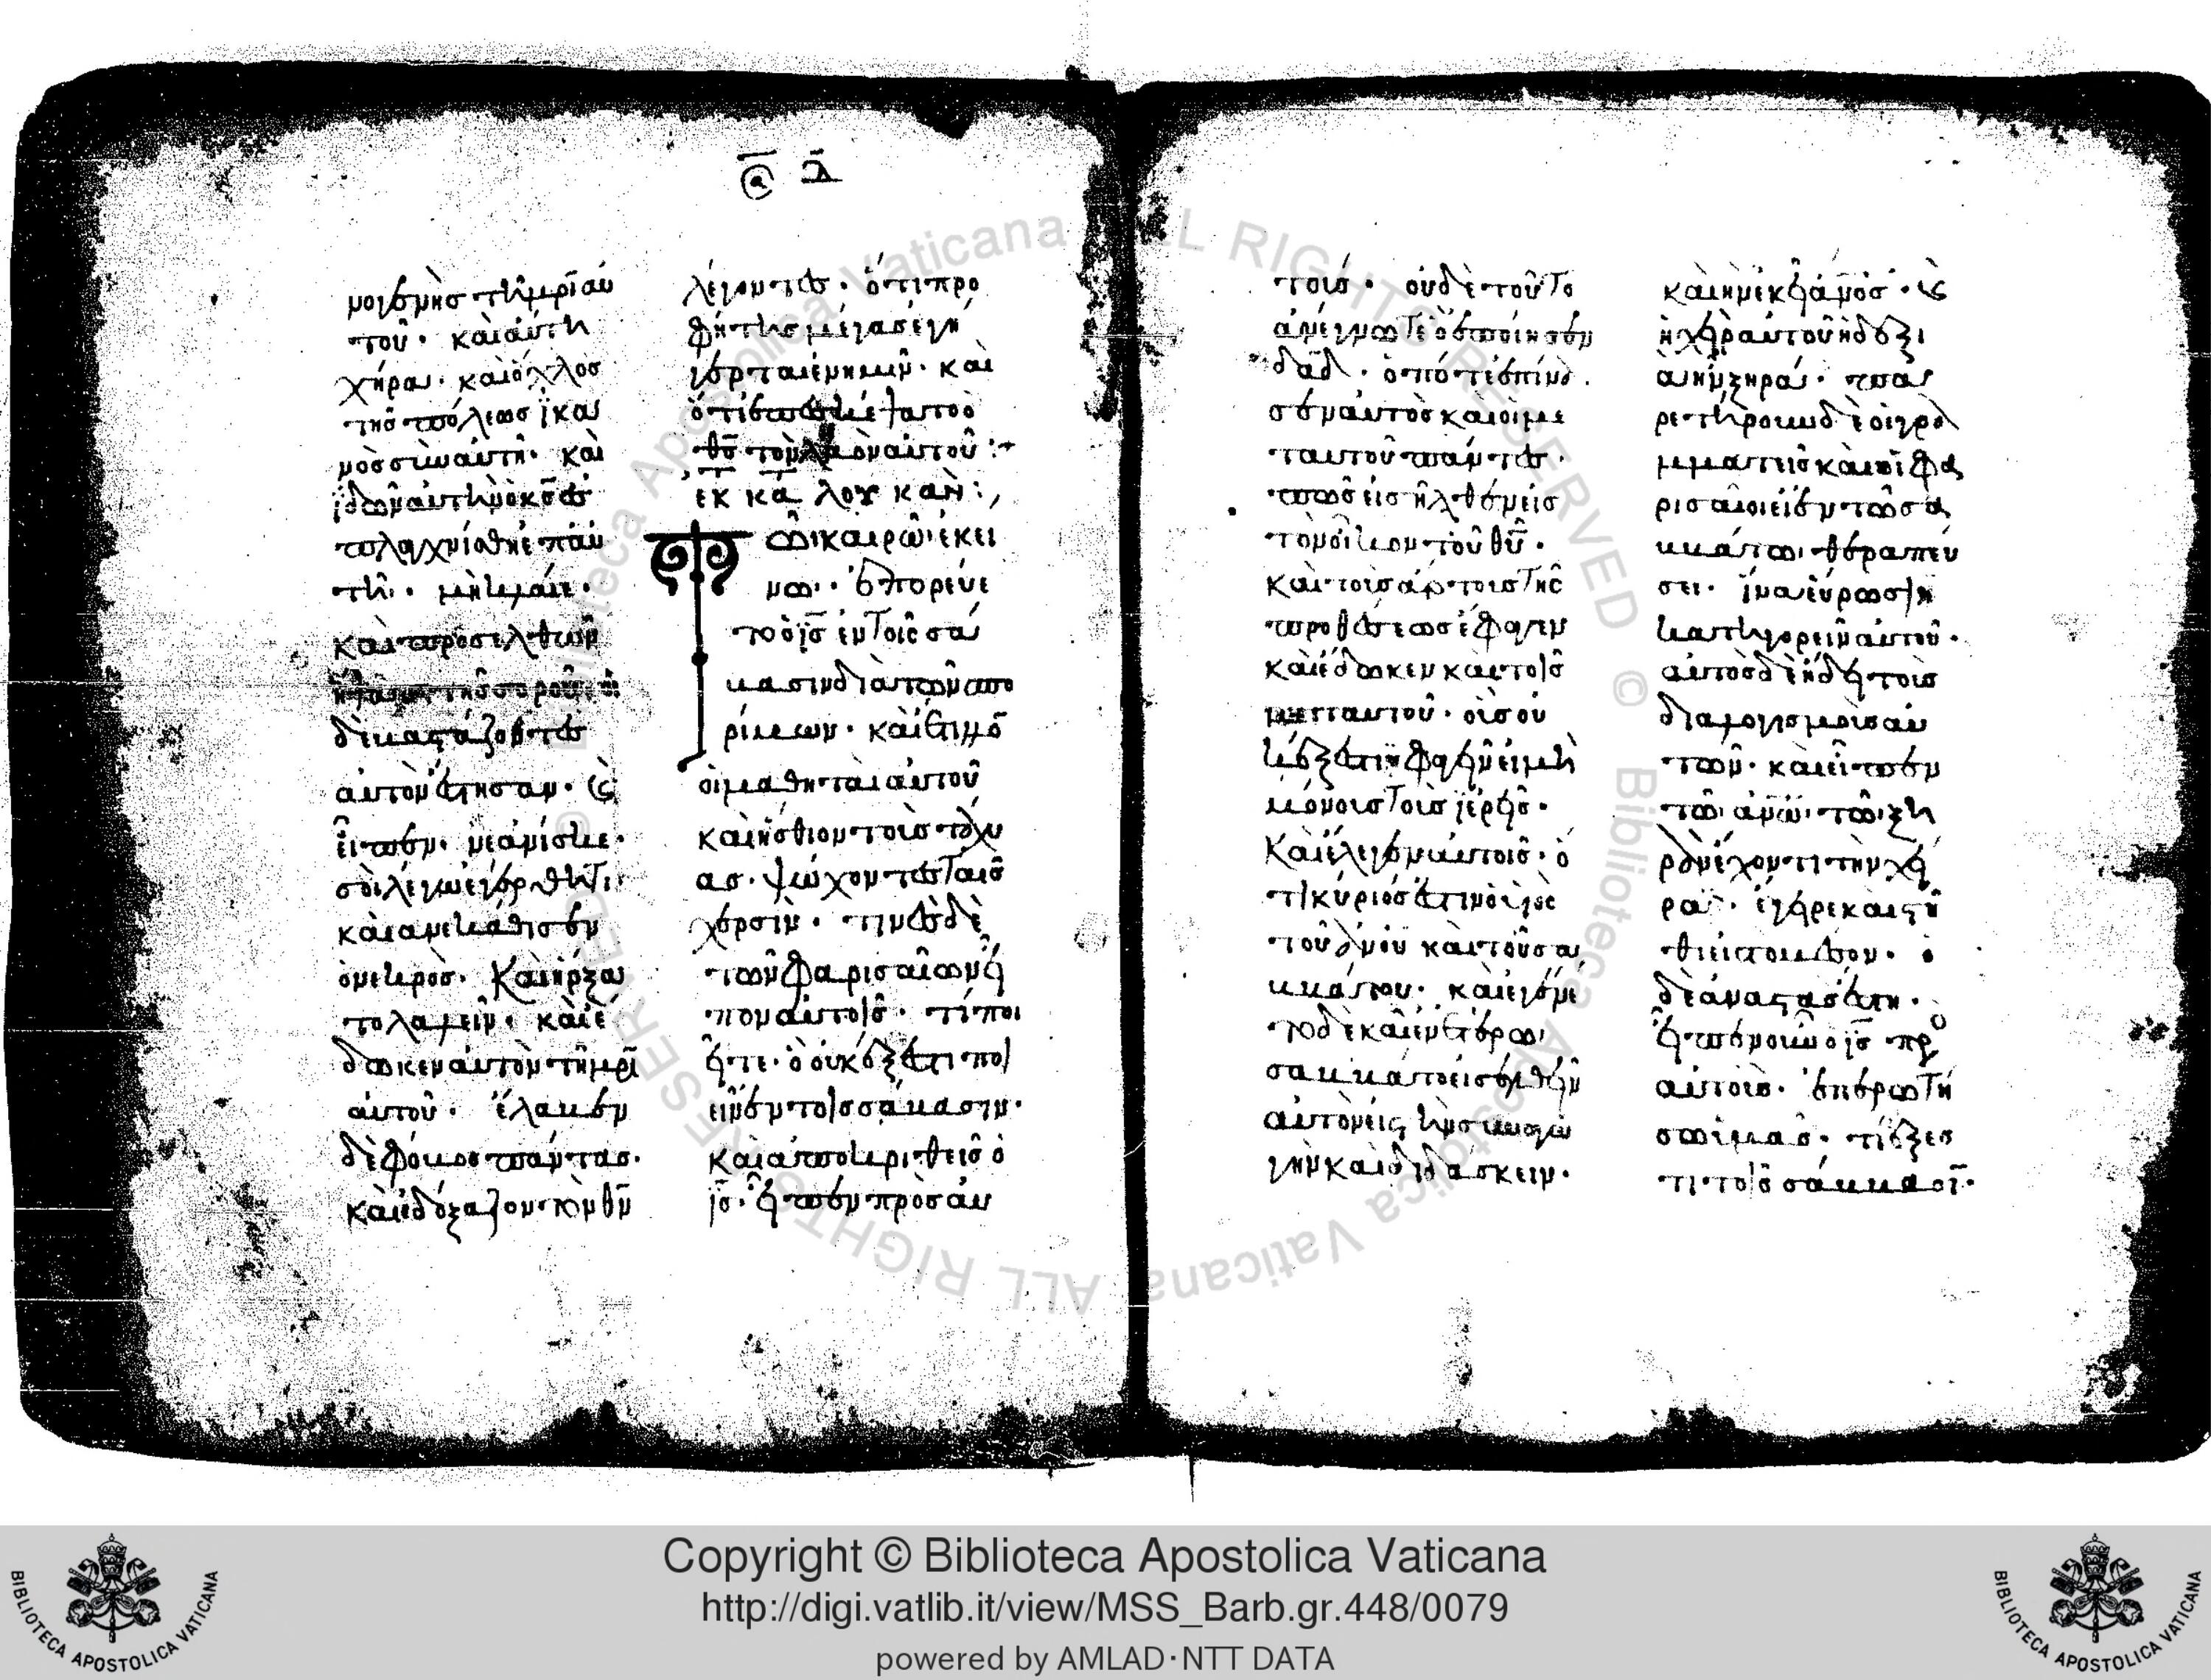 σα̅ δ̅
μογενὴς τῆ μρ̅ὶ αὐ
τοῦ· καὶ αὐτὴ
χήρα· καὶ ὄχλος
τῆς πόλεως ἱκα
νὸς σὺν αὐτῆ· καὶ
ἰδὼν αὐτὴν ὁ κς̅ ἐ
σπλαγχνίσθη ἐπ' αὐ
τῆ· μὴ κλαῖε·
καὶ προσελθὼν
ἥψατο τῆς σοροῦ· οἱ
δὲ βαστάζοντες
αὐτὸν ἔστησαν· κ(αὶ)
εἶπεν· νεανίσκε·
σοὶ λέγω ἐγέρθητι·
καὶ ἀνεκάθισεν
ὁ νεκρὸς· καὶ ἤρξα
το λαλεῖν· καὶ ἔ
δωκεν αὐτὸν τῆ μρ̅ὶ
αὐτοῦ· ἔλαβεν
δὲ φόβος πάντας·
καὶ ἐδόξαζον τὸν θν̅
λέγοντες· ὅτι προ
φήτης μέγας ἐγή
γερται ἐν ἡμῖν· καὶ
ὅτι ἐπεσκέψατο ὁ
θς̅ τὸν λαὸν αὐτοῦ :+
ἐκ κα̅ λουκὰν :,
Τῶι καιρῶ ἐκεί
νω· ἐπορεύε
το ὁ ις̅ ἐν τοῖς σά
βασιν διὰ τῶν σπο
ρίμων· καὶ ἔτιλλο̅
οἱ μαθηταὶ αὐτοῦ
καὶ ἤσθιον τοὺς στάχυ
ας· ψώχοντες ταῖς
χερσὶν· τινὲς δὲ
τῶν φαρισαίων εἶ
πον αὐτοῖς· τί ποι
εῖτε· ὃ οὐκ ἔξεστι ποι
εῖν ἐν τοῖς σάβασιν·
καὶ ἀποκριθεὶς ὁ
ις̅· εἶπεν πρὸς αὐ
τοὺς· οὐδὲ τοῦτο
ἀνέγνωτε ὃ ἐποίησεν
δα̅δ· ὁπότε ἐπείνα
σεν αὐτὸς καὶ οἱ με
τ' αὐτοῦ πάντες·
πῶς εἰσῆλθεν εἰς
τὸν οἶκον τοῦ θυ̅·
καὶ τοὺς ἄρτους τῆς
προθέσεως ἔφαγεν
καὶ ἔδωκεν καὶ τοῖς
μετ' αὐτοῦ· οὓς οὐ
κ ἔξεστιν φαγεῖν εἰ μὴ
μόνους τοὺς ἱερεῖς·
καὶ ἔλεγεν αὐτοῖς· ὅ
τι κύριός ἐστιν ὁ υἱὸς
τοῦ ἀνου̅ καὶ τοῦ σα
ββάτου· καὶ ἐγένε
το δὲ καὶ ἐν ἑτέρω
σαββάτω εἰσελθεῖν
αὐτὸν εἰς τὴν συναγω
γὴν καὶ διδάσκειν·
καὶ ἦν ἐκεῖ ἀνος̅· κ(αὶ)
ἡ χεὶρ αὐτοῦ ἡ δεξι
ὰ ἦν ξηρά· πα
ρετήρουν δὲ οἱ γρα
μματεῖς καὶ οἱ φα
ρισαῖοι εἰ ἐν τῶ σα
ββάτω θεραπεύ
σει· ἵνα εὕρωσιν
κατηγορεῖν αὐτοῦ·
αὐτὸς δὲ ἤδει τοὺς
διαλογισμοὺς αὐ
τῶν· καὶ εἶπεν
τῶ ἀνω̅ τῶ ξη
ρὰν ἔχοντι τὴν χεῖ
ρα· ἔγειρε καὶ στῆ
θι εἰς τὸ μέσον· ὁ
δὲ ἀναστὰς ἔστη·
εἶπεν οὖν ὁ ις̅ πρὸ
αὐτοὺς· ἐπερωτή
σω ὑμᾶς· τί ἔξεσ
τι τοῖς σάββασι̅·
Copyright © Biblioteca Apostolica Vaticana
http://digi.vatlib.it/view/MSS_Barb.gr.448/0079
powered by AMLAD·NTT DATA
BIBLIOTECA APOSTOLICA VATICANA
BIBLIOTECA APOSTOLICA VATICANA